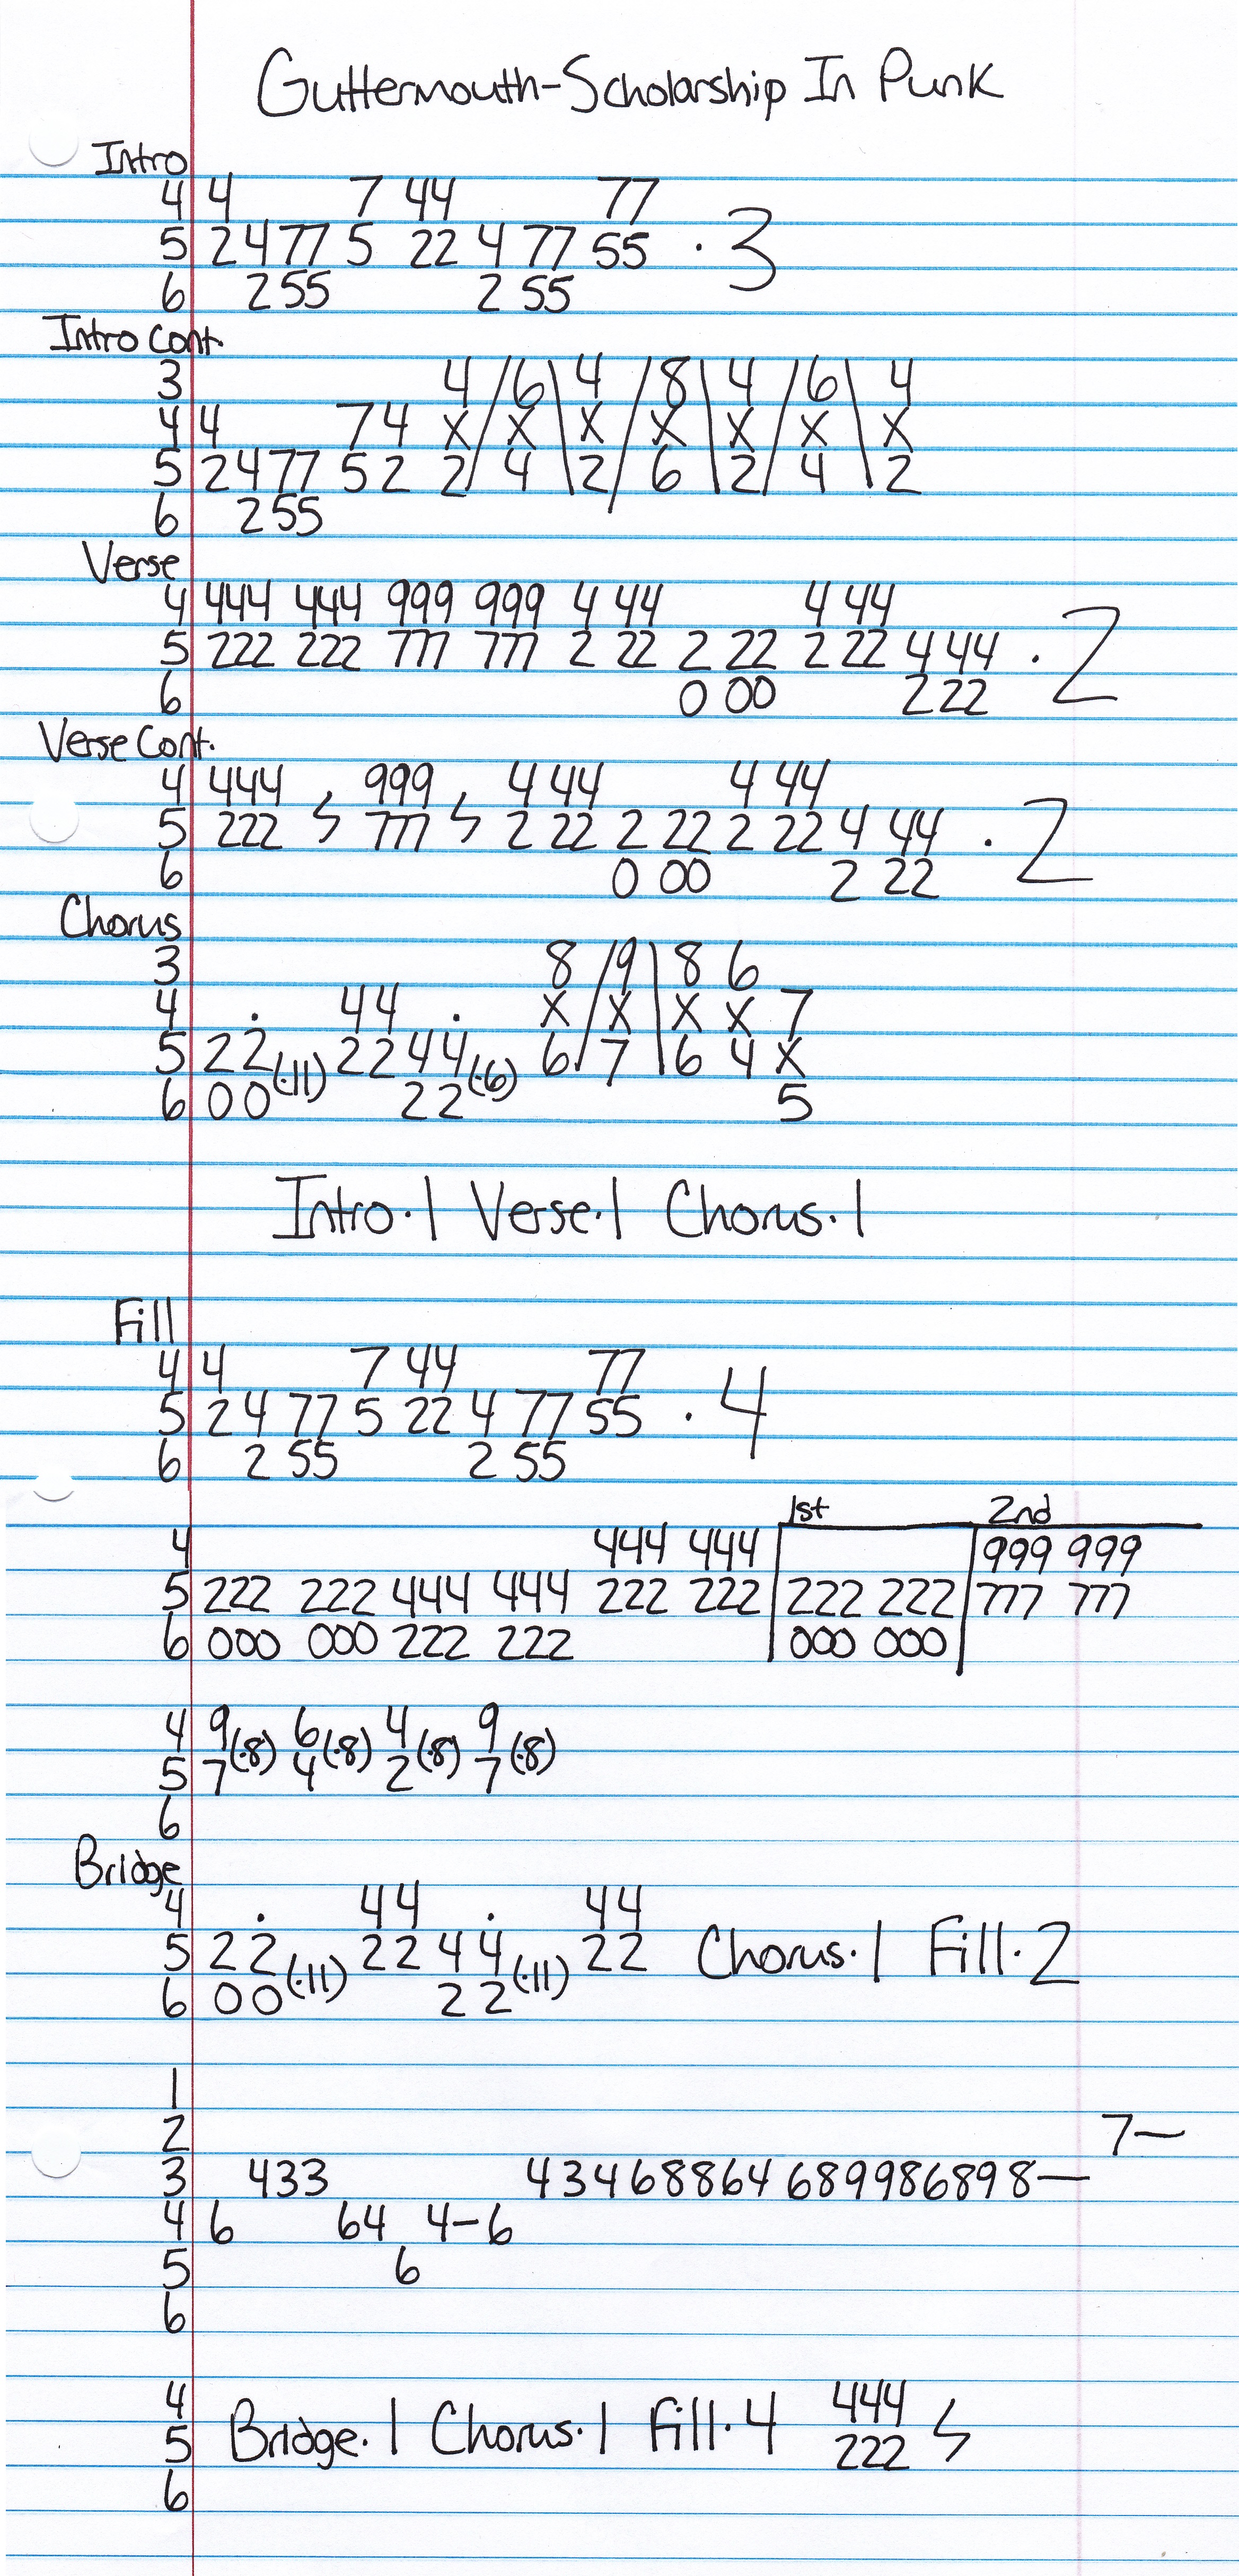 Guttermouth-Scholarship In Punk
Intro
4 4 7 44 77
5 2 4 77 5 22 4 77 55 · 3
6 2 55 2 55
Intro Cont.
3 4 / 6 \ 4 / 8 \ 4 / 6 \ 4
4 4 7 4 X X X X X X X
5 2 4 77 5 2 2 4 2 6 2 4 2
6 2 55
Verse
4 444 444 999 999 4 44 4 44
5 222 222 777 777 2 22 2 22 2 22 4 44 · 2
6 0 00 2 22
Verse Cont.
4 444 999 4 44 4 44
5 222 777 2 22 2 22 2 22 4 44 · 2
6 0 00 2 22
Chorus
3 8 / 9 \ 8 6
4 . 44 . X X X X 7
5 22 (·11) 22 44 (·6) 6 7 6 4 X
6 00 22 5
Intro·1 Verse·1 Chorus·1
Fill
4 4 7 44 77
5 2 4 77 5 22 4 77 55 · 4
6 2 55 2 55
1st 2nd
4 444 444 999 999
5 222 222 444 444 222 222 222 222 777 777
6 000 000 222 222 000 000
4 9 (·8) 6 (·8) 4 (·8) 9 (·8)
5 7 4 2 7
6
Bridge
4 . 44 . 44
5 22 (·11) 22 44 (·11) 22 Chorus·1 Fill·2
6 00 22
1
2 7—
3 433 434688646899868 98—
4 6 64 4-6
5 6
6
4 444
5 Bridge·1 Chorus·1 Fill·4 222
6